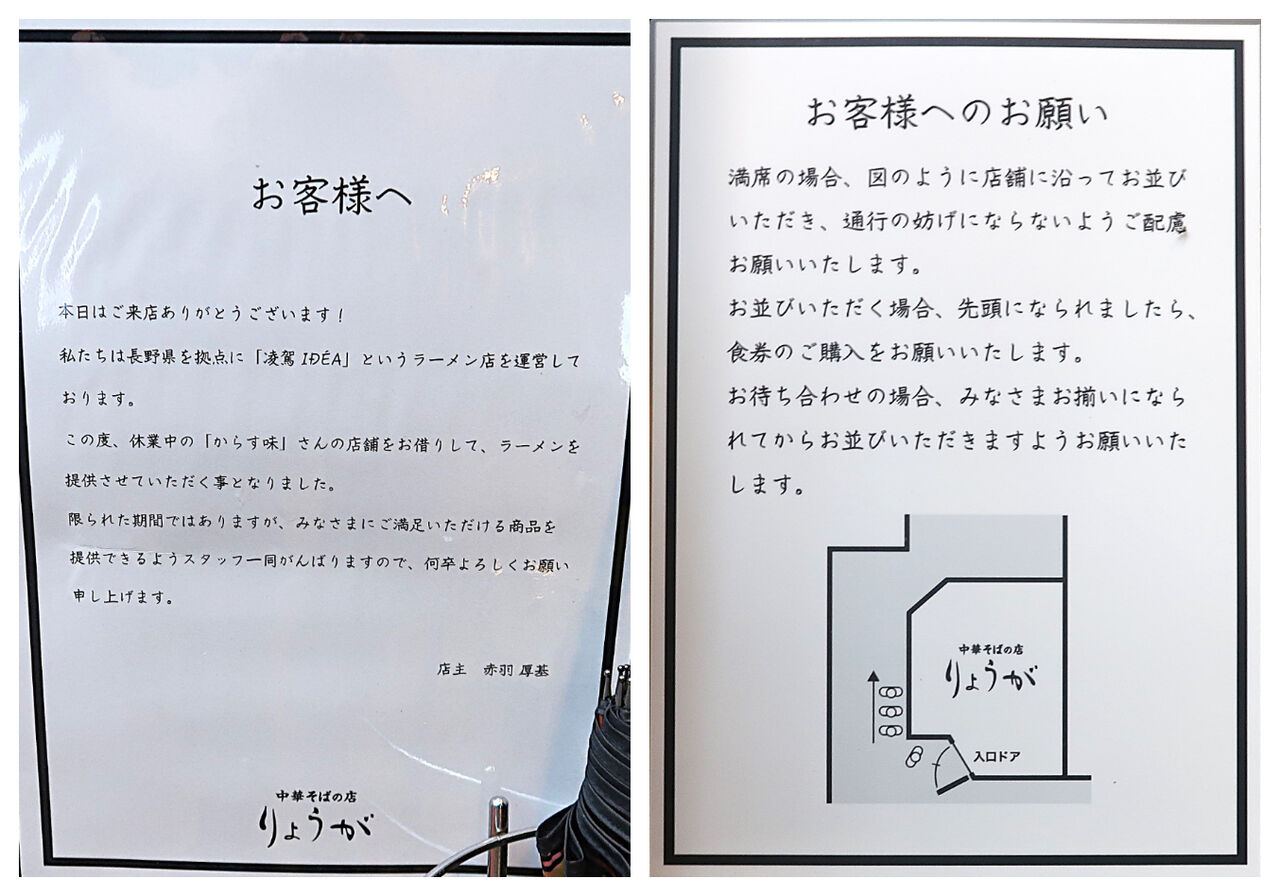 お客様へ
本日はご来店ありがとうございます！
私たちは長野県を拠点に「凌駕 IDÉA」というラーメン店を運営して
おります。
この度、休業中の「からす味」さんの店舗をお借りして、ラーメンを
提供させていただく事となりました。
限られた期間ではありますが、みなさまにご満足いただける商品を
提供できるようスタッフ一同がんばりますので、何卒よろしくお願い
申し上げます。
店主　赤羽 厚基
中華そばの店
りょうが
お客様へのお願い
満席の場合、図のように店舗に沿ってお並び
いただき、通行の妨げにならないようご配慮
お願いいたします。
お並びいただく場合、先頭になられましたら、
食券のご購入をお願いいたします。
お待ち合わせの場合、みなさまお揃いになら
れてからお並びいただきますようお願いいた
します。
中華そばの店
りょうが
入口ドア